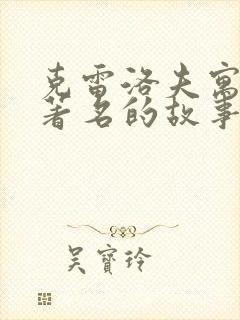 克雷洛夫寓
著名的故事
吴寶玲